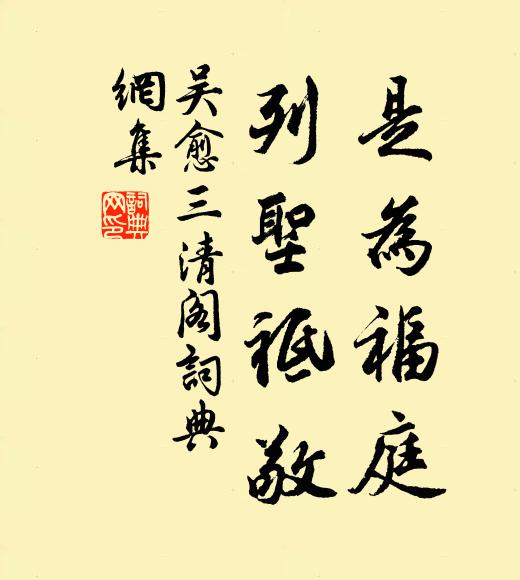 是為福庭
列聖祗敬
吳愈三清閣詞典
網集
詞典
網印